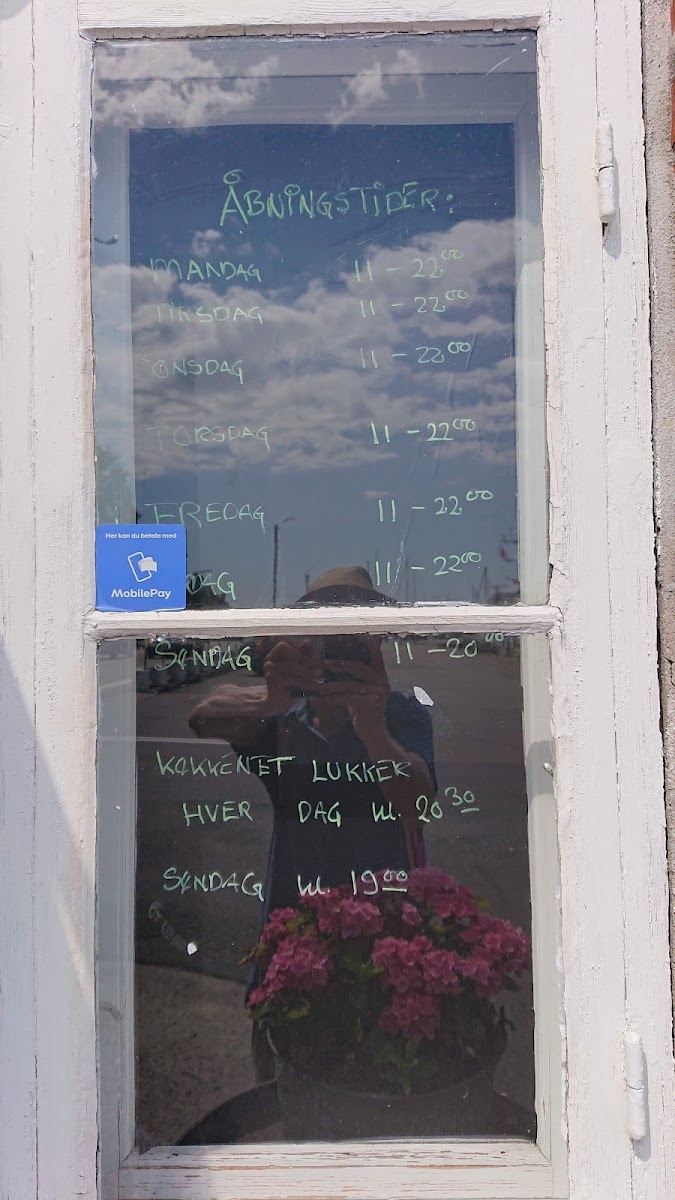 ÅBNINGSTIDER:
MANDAG 11 - 22.00
TIRSDAG 11 - 22.00
ONSDAG 11 - 22.00
TORSDAG 11 - 22.00
FREDAG 11 - 22.00
DAG 11 - 22.00
Her kan du betale med
MobilePay
SØNDAG 11 - 20.00
KØKKENET LUKKER
HVER DAG kl. 20 30
SØNDAG kl. 19 00